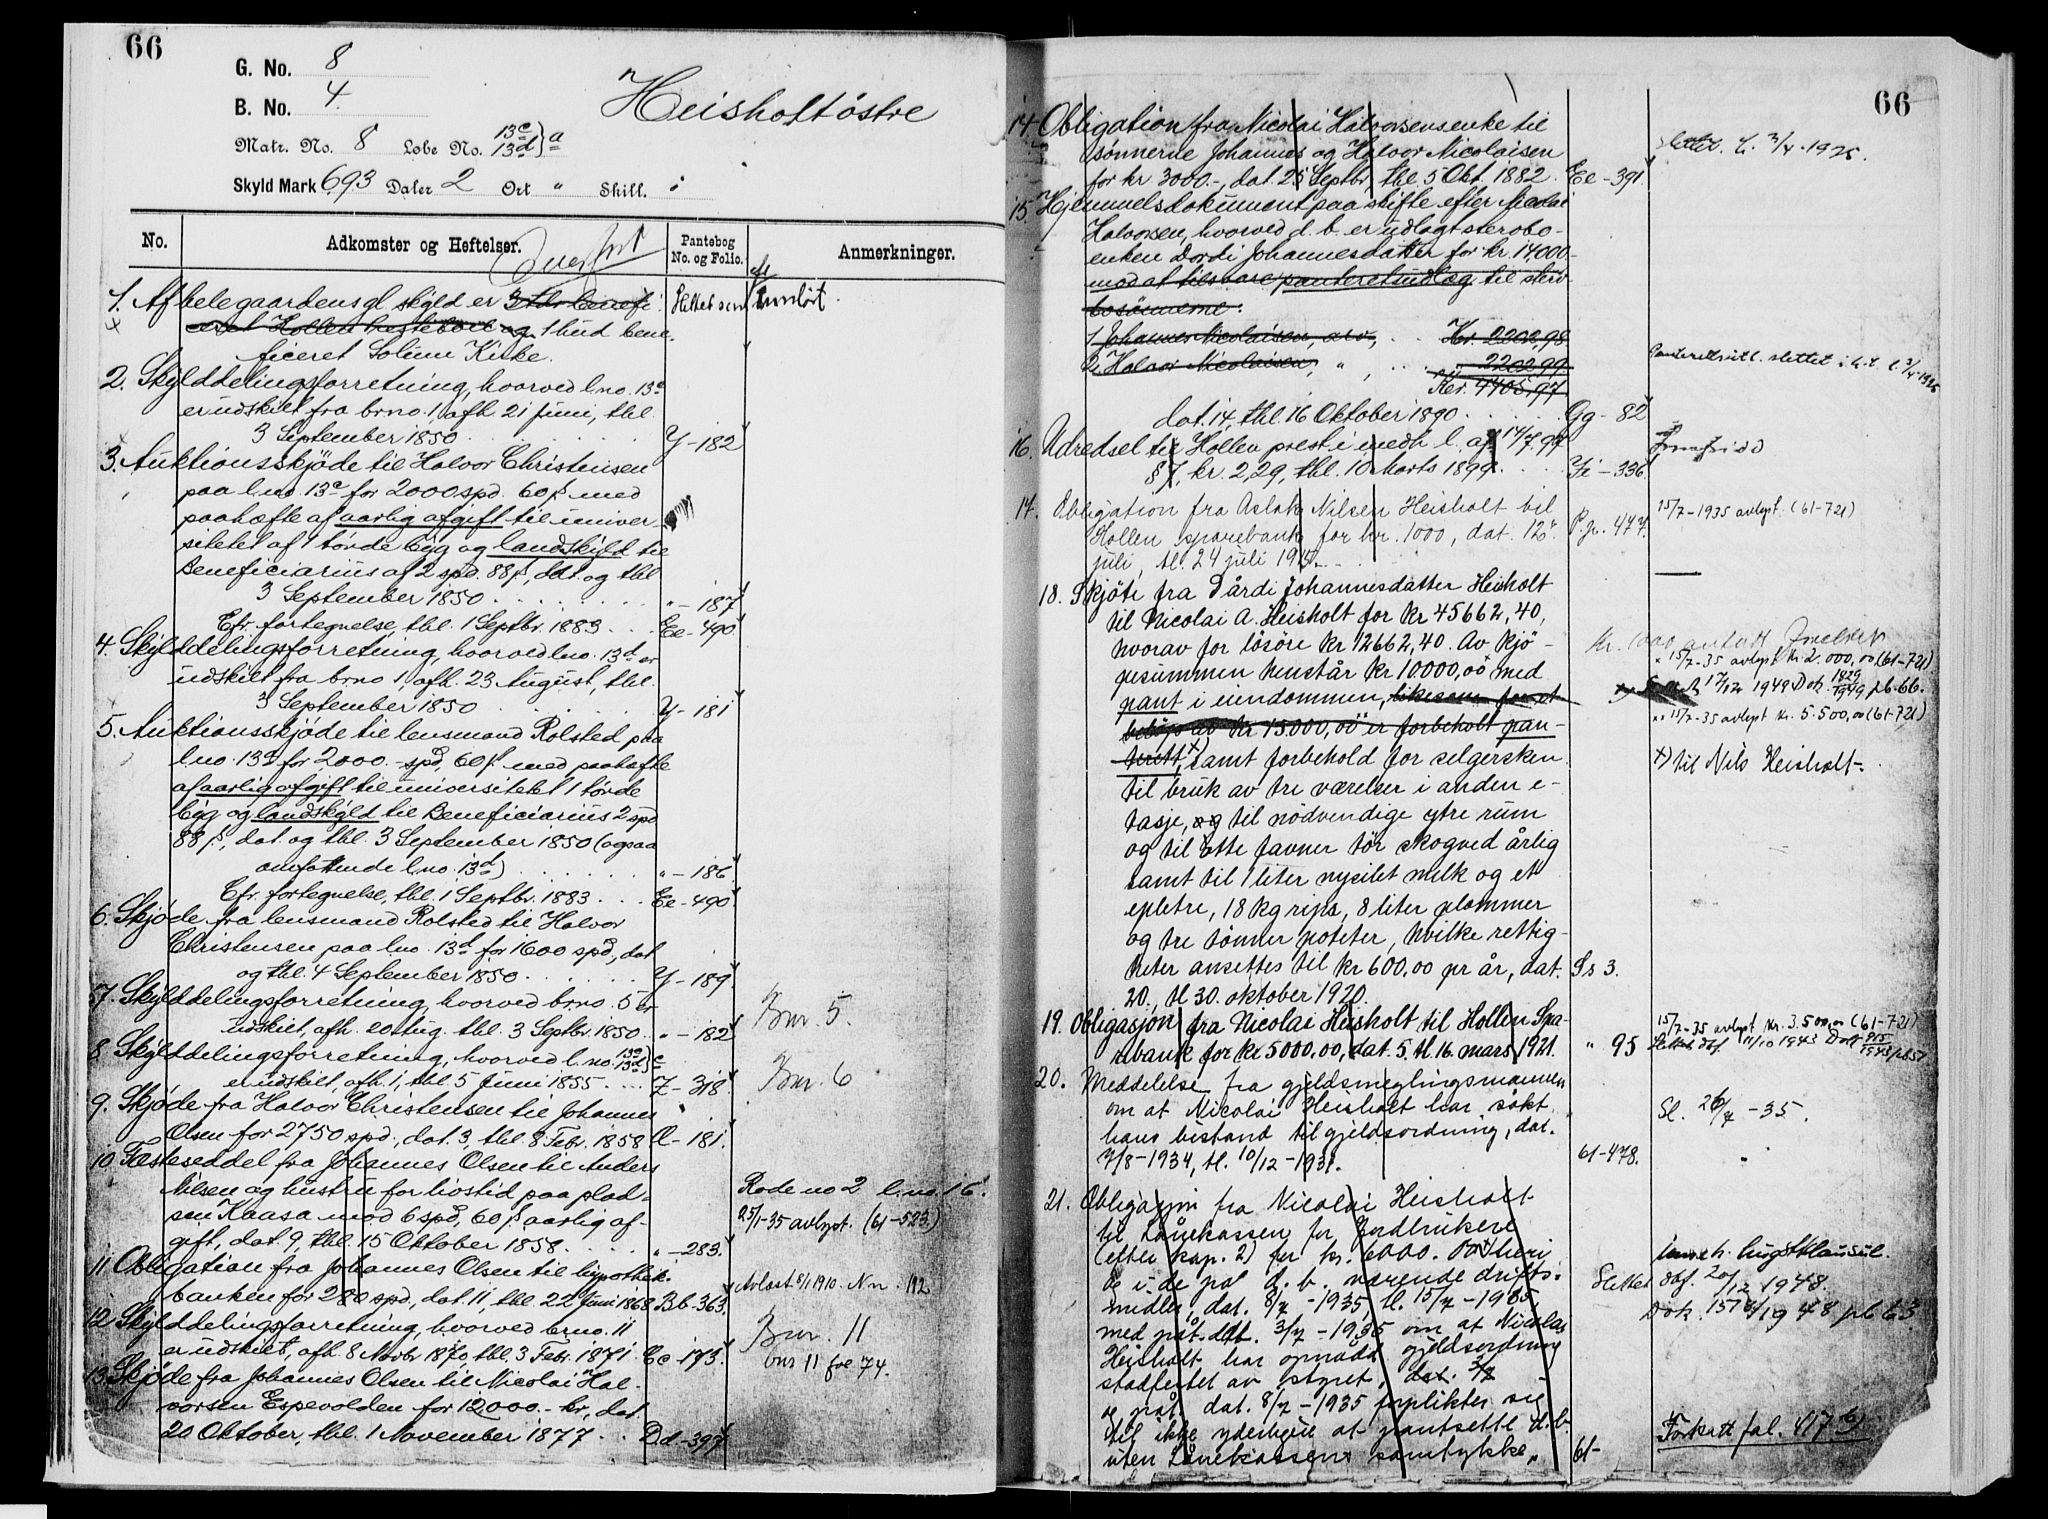 66
G. No. 8
B. No. 4.
Heisholt östre
Matr. No. 8 Løbe No. 13c 13d } a
Skyld Mark 6.93 Daler 2 Ort " Skill. "
No.
Adkomster og Heftelser.
Pantebog No. og Folio.
Anmerkninger.
Overført
1. Af helegaardens gl. skyld er 3
Slettet som innløst.
og 1 hud bene-
ficeret Solum Kirke.
2. Skylddelingsforretning, hvorved l.no. 13c
er udskilt fra brno. 1, afh. 21 Juni, thl.
3 September 1850 Y-182
3. Auktionsskjöde til Halvor Christensen
paa l.no. 13c for 2000 spd. 60 s. med
paahæfte af aarlig afgift til univer-
sitetet af 1 tönde byg og landskyld til
Beneficiarius af 2 spd. 88 s., dat. og thl.
3 September 1850 "-187
Cfr. fortegnelse, thl. 1 Septbr. 1883 Ee-490
4. Skylddelingsforretning, hvorved l.no. 13d er
udskilt fra brno 1, afh. 23 August, thl.
3 September 1850 Y-181
5. Auktionsskjöde til lensmand Rolsted paa
l.no. 13d for 2000.- spd, 60 s. med paahæfte
af aarlig afgift til universitetet 1 tönde
byg og landskyld til Beneficiarius 2 spd
88 s., dat. og thl. 3 September 1850 (ogsaa
omfattende l.no. 13d) "-186
Cfr. fortegnelse, thl. 1 Septbr. 1883 Ee-490
6. Skjöde fra lensmand Rolsted til Halvor
Christensen paa l.no. 13d for 1600 spd, dat
og thl. 4 September 1850 Y-189
7. Skylddelingsforretning, hvorved brno. 5 er
udskilt, afh. 20 Aug. thl. 3 Septbr. 1850 "-182
Bnr. 5.
8. Skylddelingsforretning, hvorved l.no. 13c 13d } c
er udskilt, afh. 1, thl. 5 Juni 1855 Z-318
Bnr. 6
9. Skjöde fra Halvor Christensen til Johannes
Olsen for 2750 spd., dat. 3, thl. 8 Febr. 1858 A-181.
10. Fæsteseddel fra Johannes Olsen til Anders
Nilsen og hustru for livstid paa plad-
sen Kaasa mod 6 spd, 60 s aarlig af-
gift, dat. 9, thl. 15 Oktober 1858 "-283.
Rode no 2 l.no. 16.
25/1-35 avlyst. (61-523.)
11. Obligation fra Johannes Olsen til hypothek-
banken for 280 spd, dat. 11, thl. 22 Juni 1868 Bb-363.
Avlæst 8/1 1910. Nr. 192
12. Skylddelingsforretning, hvorved brno. 11
er udskilt, afh. 8 Novbr 1870, thl. 3 Febr. 1871. Cc-173.
Bnr. 11
bnr 11 fol 74.
13. Skjöde fra Johannes Olsen til Nicolai Hal-
vorsen Espevolden for 12,000.- kr., dat
20 Oktober, thl. 1 November 1877 Dd-397
66
14. Obligation fra Nicolai Halvorsens enke til
sönnerne Johannes og Halvor Nicolaisen
for kr 3000.-, dat. 25 Septbr, thl. 5 Okt. 1882. Ee-391.
slettet. t. 3/4-1925.
15. Hjemmelsdokument paa skifte efter Nicolai
Halvorsen, hvorved d. b. er udlagt sterbo-
enken Dordi Johannesdatter for kr. 14,000.-
mod at tilsvare panteretsudlæg til ster-
bosönnerne:
1, Johannes Nicolaisen, arv, Kr. 2202,98
2, Halvor Nicolaisen, " , " 2202,99
Kr. 4405,97
Panteretsutl. slettet i h.t. t. 3/4-1925
dat. 14, thl. 16 Oktober 1890 Gg-82
16. Udredsel til Hollen prest i medh. l. af 14/7.97
§ 7, kr. 2,29, thl. 10 Marts 1899. Yi-336.
17. Obligation fra Aslak Nilsen Heisholt til
Hollen sparebank for kr. 1000, dat. 12
juli, tl. 24 juli 191 P.p. 477.
15/7-1935 avlyst. (61-721)
18. Skjöte fra Dårdi Johannesdatter Heisholt
til Nicolai A. Heisholt for kr 45662,40,
hvorav for lösöre kr 12662,40. Av kjö-
pesummen henstår kr 10.000,00 med
pant i eiendommen, likesom for et
belöp av kr 15.000,00 er forbeholt pan-
terett, x) samt forbehold for selgersken
til bruk av tre værelser i anden e-
tasje, og til nödvendige ytre rum
og til otte favner tör skogved årlig
samt til 1 liter nysilet melk og et
epletre, 18 kg rips, 8 liter plommer
og tre tönner poteter, hvilke rettig-
heter ansettes til kr 600,00 pr år, dat.
20., tl 30. oktober 1920. Ss 3.
x 15/7-35 avlyst kr. 2.000,00 (61-721)
17/12 1949 Dok 1829/1949 pb 66.
xx 15/7-35 avlyst kr. 5.500,00 (61-721)
x) til Nils Heisholt.
19. Obligasjon fra Nicolai Heisholt til Hollen Spa-
rebank for kr 5000,00, dat. 5. tl. 16. mars 1921. " 95
15/7-35 avlyst kr. 3.500,00 (61-721)
Slettet dbf. 11/10 1943 Dok 915/1943 pb 57
20. Meddelelse fra gjeldsmeglingsmannen
om at Nicolai Heisholt har sökt
hans bistand til gjeldsordning, dat.
7/8-1934, tl. 10/12-1934. 61-478.
Sl. 26/7-35.
21. Obligasjon fra Nicolai Heisholt
til Lånekassen for Jordbrukere
(efter kap. 2) for kr. 6000.00 x) heri
og i de på d. b. værende drifts-
midler, dat. 8/7-1935, tl. 15/7-1935
med påt. dat. 3/7-1935 om at Nicolai
Heisholt har opnådd gjeldsordning
stadfestet av styret, dat. 3/7
og påt. dat. 8/7-1935 forplikter sig
til ikke yderligere at pantsette d.b.
uten Lånekassens samtykke. 61-
inneh. hugstklausul.
Slettet dbf. 20/12 1948.
Dok. 1578/1948 pb 63
Fortsatt fol. 417 b).